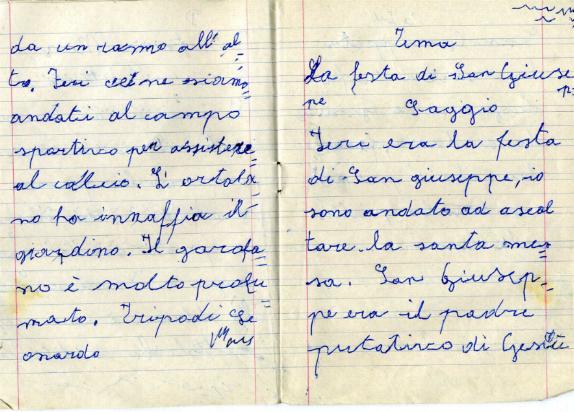 da un ramo all' al=
to. Ieri ce ne siamo=
andati al campo
sportivo per assistere=
al calcio. L' ortola=
no ha innaffia il
giardino. Il garofa=
no è molto profu=
mato. Tripodi Le
onardo
Tema
La festa di San Giusep
pe Saggio
Ieri era la festa
di San giuseppe, io
sono andato ad ascol
tare la santa mes=
sa. San Giusep=
pe era il padre
putativo di Gesù